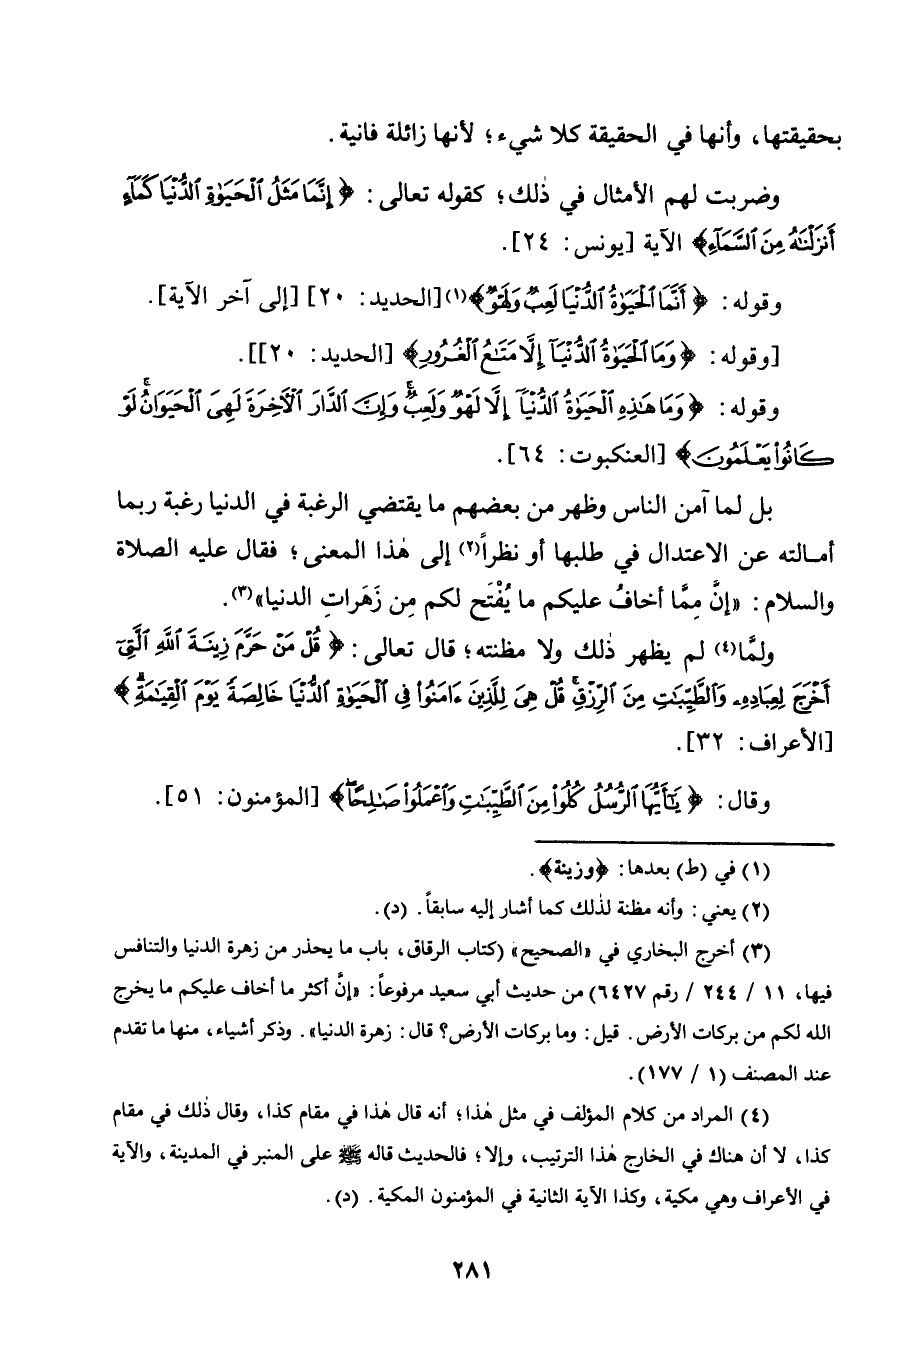 بحقيقتها، وأنها في الحقيقة كلا شيء؛ لأنها زائلة فانية.
وضربت لهم الأمثال في ذٰلك؛ كقوله تعالى: ﴿إِنَّمَا مَثَلُ ٱلْحَيَوٰةِ ٱلدُّنْيَا كَمَآءٍ
أَنزَلْنَٰهُ مِنَ ٱلسَّمَآءِ﴾ الآية [يونس: ٢٤].
وقوله: ﴿أَنَّمَا ٱلْحَيَوٰةُ ٱلدُّنْيَا لَعِبٌ وَلَهْوٌ﴾(١) [الحديد: ٢٠] [إلى آخر الآية].
[وقوله: ﴿وَمَا ٱلْحَيَوٰةُ ٱلدُّنْيَآ إِلَّا مَتَٰعُ ٱلْغُرُورِ﴾ [الحديد: ٢٠]].
وقوله: ﴿وَمَا هَٰذِهِ ٱلْحَيَوٰةُ ٱلدُّنْيَآ إِلَّا لَهْوٌ وَلَعِبٌ ۚ وَإِنَّ ٱلدَّارَ ٱلْأَخِرَةَ لَهِىَ ٱلْحَيَوَانُ ۚ لَوْ
كَانُوا۟ يَعْلَمُونَ﴾ [العنكبوت: ٦٤].
بل لما آمن الناس وظهر من بعضهم ما يقتضي الرغبة في الدنيا رغبة ربما
أمالته عن الاعتدال في طلبها أو نظراً(٢) إلى هٰذا المعنى؛ فقال عليه الصلاة
والسلام: «إنَّ مِمَّا أخافُ عليكم ما يُفْتَح لكم مِن زَهَراتِ الدنيا»(٣).
ولمَّا(٤) لم يظهر ذٰلك ولا مظنته؛ قال تعالى: ﴿قُلْ مَنْ حَرَّمَ زِينَةَ ٱللَّهِ ٱلَّتِىٓ
أَخْرَجَ لِعِبَادِهِۦ وَٱلطَّيِّبَٰتِ مِنَ ٱلرِّزْقِ ۚ قُلْ هِىَ لِلَّذِينَ ءَامَنُوا۟ فِى ٱلْحَيَوٰةِ ٱلدُّنْيَا خَالِصَةً يَوْمَ ٱلْقِيَٰمَةِ ۗ﴾
[الأعراف: ٣٢].
وقال: ﴿يَٰٓأَيُّهَا ٱلرُّسُلُ كُلُوا۟ مِنَ ٱلطَّيِّبَٰتِ وَٱعْمَلُوا۟ صَٰلِحًا ۖ﴾ [المؤمنون: ٥١].
(١) في (ط) بعدها: ﴿وزينة﴾.
(٢) يعني: وأنه مظنة لذٰلك كما أشار إليه سابقاً. (د).
(٣) أخرج البخاري في «الصحيح» (كتاب الرقاق، باب ما يحذر من زهرة الدنيا والتنافس
فيها، ١١ / ٢٤٤ / رقم ٦٤٢٧) من حديث أبي سعيد مرفوعاً: «إنَّ أكثر ما أخاف عليكم ما يخرج
الله لكم من بركات الأرض. قيل: وما بركات الأرض؟ قال: زهرة الدنيا». وذكر أشياء، منها ما تقدم
عند المصنف (١ / ١٧٧).
(٤) المراد من كلام المؤلف في مثل هٰذا؛ أنه قال هٰذا في مقام كذا، وقال ذٰلك في مقام
كذا، لا أن هناك في الخارج هٰذا الترتيب، وإلا؛ فالحديث قاله ﷺ على المنبر في المدينة، والآية
في الأعراف وهي مكية، وكذا الآية الثانية في المؤمنون المكية. (د).
٢٨١